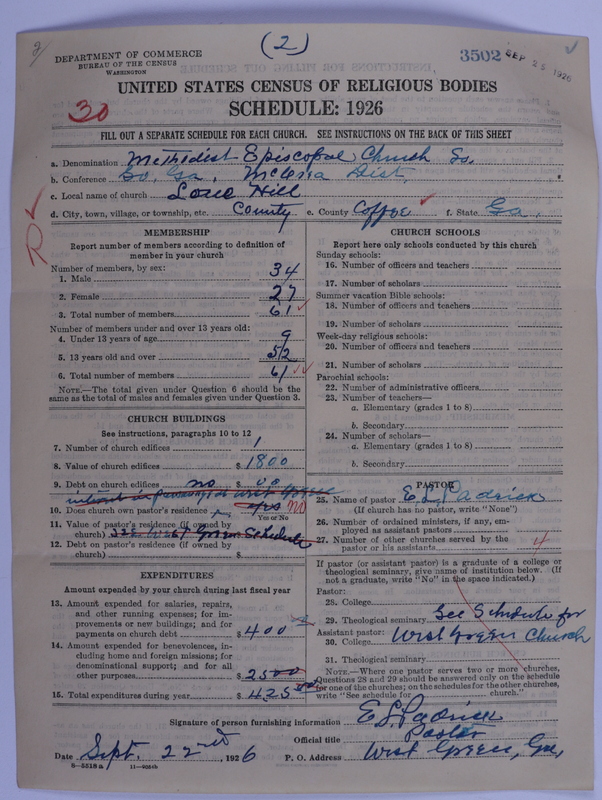 (2)
3502
SEP 25 1926
DEPARTMENT OF COMMERCE
BUREAU OF THE CENSUS
WASHINGTON
UNITED STATES CENSUS OF RELIGIOUS BODIES
30
SCHEDULE: 1926
FILL OUT A SEPARATE SCHEDULE FOR EACH CHURCH. SEE INSTRUCTIONS ON THE BACK OF THIS SHEET
a. Denomination Methodist Episcopal Church So.
b. Conference So. Ga. Dist.
c. Local name of church Lone Hill
d. City, town, village, or township, etc. County e. County Coffee f. State Ga.
R
MEMBERSHIP
Report number of members according to definition of
member in your church
Number of members, by sex:
1. Male 34
2. Female 27
3. Total number of members 61
Number of members under and over 13 years old:
4. Under 13 years of age 9
5. 13 years old and over 52
6. Total number of members 61
NOTE.—The total given under Question 6 should be the
same as the total of males and females given under Question 3.
CHURCH BUILDINGS
See instructions, paragraphs 10 to 12
7. Number of church edifices 1
8. Value of church edifices $ 1800
9. Debt on church edifices no $ 00
interest in parsonage at West Green
10. Does church own pastor's residence? yes no
Yes or No
11. Value of pastor's residence (if owned by
church) See West Green Schedule
12. Debt on pastor's residence (if owned by
church) $
EXPENDITURES
Amount expended by your church during last fiscal year
13. Amount expended for salaries, repairs,
and other running expenses; for im-
provements or new buildings; and for
payments on church debt $ 400
14. Amount expended for benevolences, in-
cluding home and foreign missions; for
denominational support; and for all
other purposes $ 25 00
15. Total expenditures during year $ 425 00
CHURCH SCHOOLS
Report here only schools conducted by this church
Sunday schools:
16. Number of officers and teachers
17. Number of scholars
Summer vacation Bible schools:
18. Number of officers and teachers
19. Number of scholars
Week-day religious schools:
20. Number of officers and teachers
21. Number of scholars
Parochial schools:
22. Number of administrative officers
23. Number of teachers—
a. Elementary (grades 1 to 8)
b. Secondary
24. Number of scholars—
a. Elementary (grades 1 to 8)
b. Secondary
PASTOR
25. Name of pastor E. L. Padrick
(If church has no pastor, write "None")
26. Number of ordained ministers, if any, em-
ployed as assistant pastors
27. Number of other churches served by the
pastor or his assistants 4
If pastor (or assistant pastor) is a graduate of a college or
theological seminary, give name of institution below. (If
not a graduate, write "No" in the space indicated.)
Pastor:
28. College
29. Theological seminary See Schedule for
Assistant pastor: West Green Church
30. College
31. Theological seminary
NOTE.—Where one pastor serves two or more churches,
Questions 28 and 29 should be answered only on the schedule
for one of the churches; on the schedules for the other churches,
write "See schedule for church."
Signature of person furnishing information E L Padrick
Official title Pastor
Date Sept. 22nd, 1926 P. O. Address West Green, Ga.
8-5518a 11-9054b